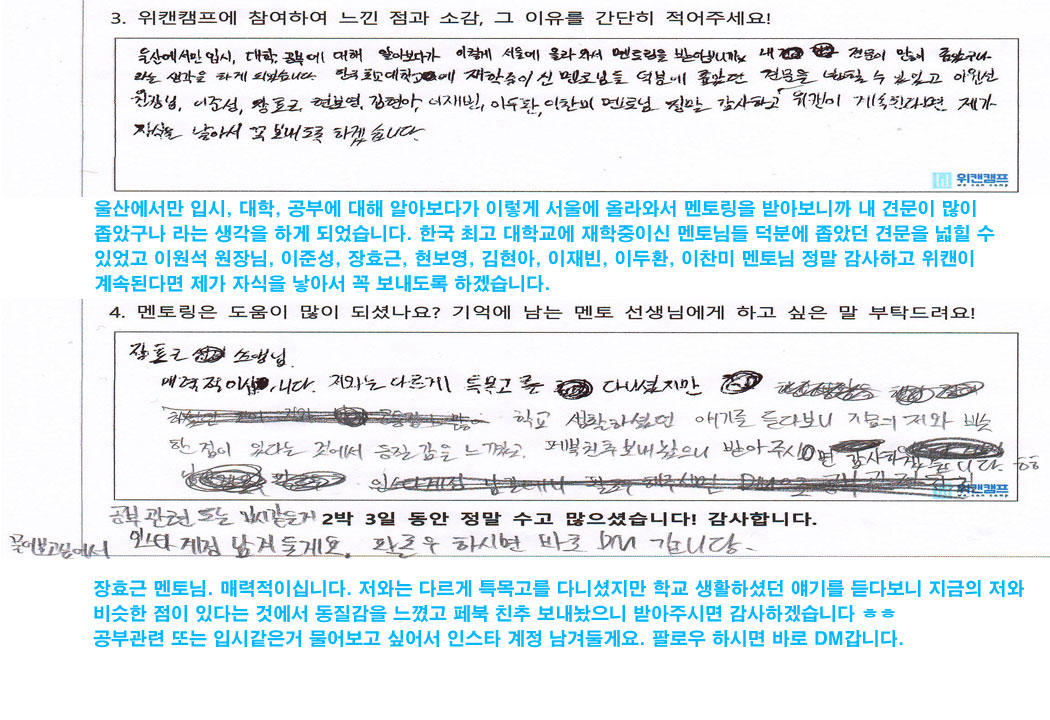 3. 위캔캠프에 참여하여 느낀 점과 소감, 그 이유를 간단히 적어주세요!
울산에서만 입시, 대학, 공부에 대해 알아보다가 이렇게 서울에 올라와서 멘토링을 받아보니까 내 견문이 많이 좁았구나
라는 생각을 하게 되었습니다. 한국 최고 대학교에 재학중이신 멘토님들 덕분에 좁았던 견문을 넓힐 수 있었고 이원석
원장님, 이준성, 장효근, 현보영, 김현아, 이재빈, 이두환, 이찬미 멘토님 정말 감사하고 위캔이 계속된다면 제가
자식을 낳아서 꼭 보내도록 하겠습니다.
위캔캠프
we can camp
울산에서만 입시, 대학, 공부에 대해 알아보다가 이렇게 서울에 올라와서 멘토링을 받아보니까 내 견문이 많이
좁았구나 라는 생각을 하게 되었습니다. 한국 최고 대학교에 재학중이신 멘토님들 덕분에 좁았던 견문을 넓힐 수
있었고 이원석 원장님, 이준성, 장효근, 현보영, 김현아, 이재빈, 이두환, 이찬미 멘토님 정말 감사하고 위캔이
계속된다면 제가 자식을 낳아서 꼭 보내도록 하겠습니다.
4. 멘토링은 도움이 많이 되셨나요? 기억에 남는 멘토 선생님에게 하고 싶은 말 부탁드려요!
장효근 선생님.
매력적이십니다. 저와는 다르게 특목고를 다니셨지만
학교 생활하셨던 얘기를 듣다보니 지금의 저와 비슷
한 점이 있다는 것에서 동질감을 느꼈고, 페북친추 보내놨으니 받아주시면 감사하겠습니다 ㅎㅎ
위캔캠프
공부 관련 또는 입시같은거 2박 3일 동안 정말 수고 많으셨습니다! 감사합니다.
물어보고싶어서 인스타 계정 남겨 둘게요. 팔로우 하시면 바로 DM 갑니다.
장효근 멘토님. 매력적이십니다. 저와는 다르게 특목고를 다니셨지만 학교 생활하셨던 얘기를 듣다보니 지금의 저와
비슷한 점이 있다는 것에서 동질감을 느꼈고 페북 친추 보내놨으니 받아주시면 감사하겠습니다 ㅎㅎ
공부관련 또는 입시같은거 물어보고 싶어서 인스타 계정 남겨둘게요. 팔로우 하시면 바로 DM갑니다.